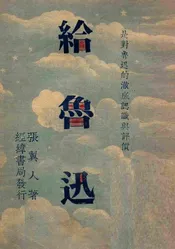 共對魯迅的澈底認識與評價
給魯迅
張翼人著
經緯書局發行